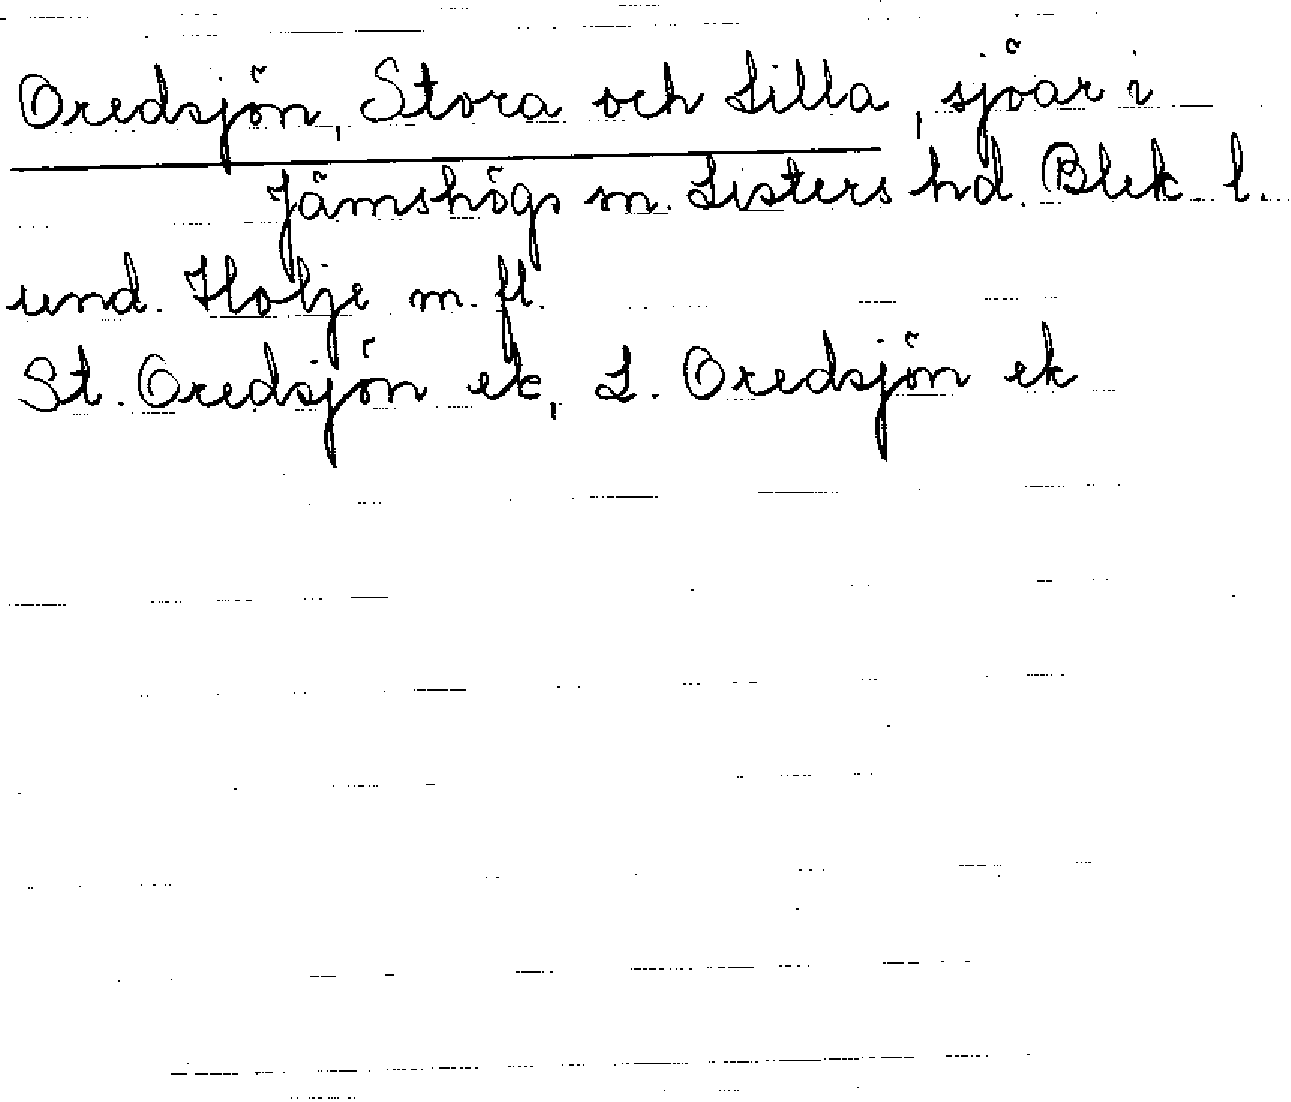 Oredsjön, Stora och Lilla, sjöar i
Jämshögs sn. Listers hd. Blek. l.
und. Holje m. fl.
St. Oredsjön ek, L. Oredsjön ek